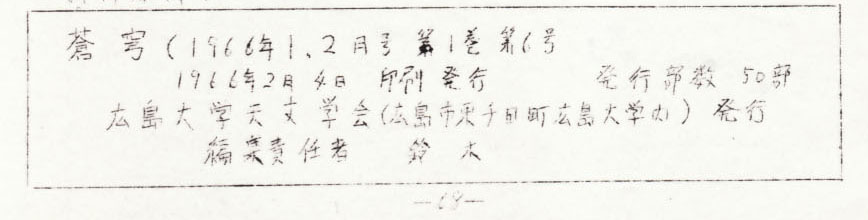 蒼穹(1966年1、2月号 第1巻 第6号
1966年2月4日 印刷 発行 発行部数 50部
広島大学天文学会(広島市東千田町広島大学内) 発行
編集責任者 鈴木
—68—